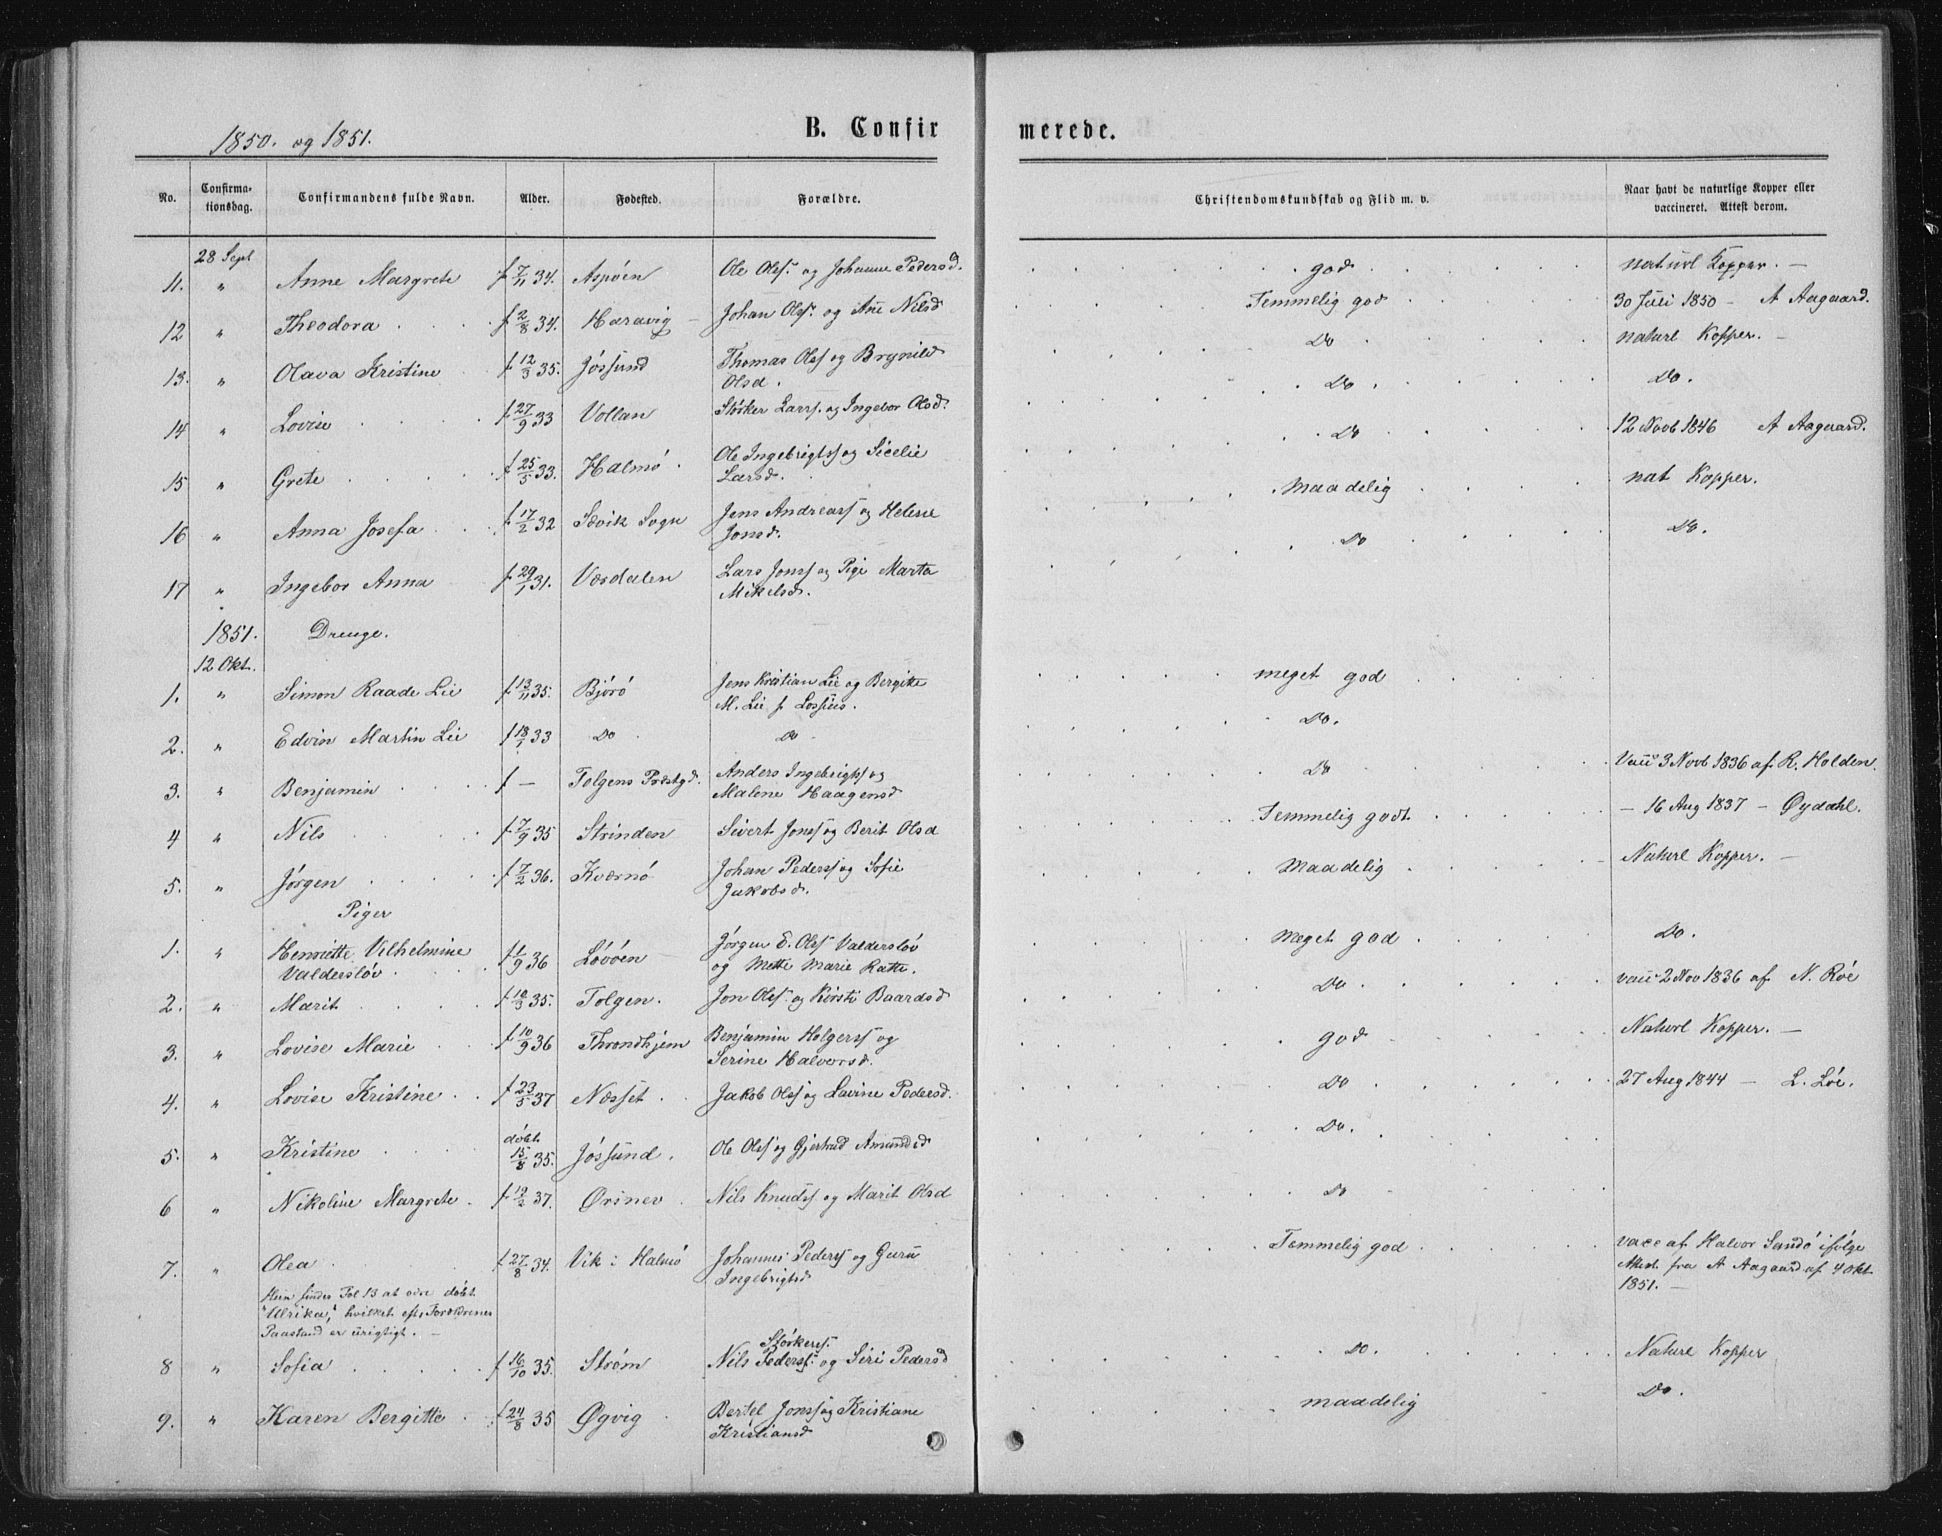 1850. og 1851.
B. Confirmerede.
No. Confirmationsdag. Confirmandens fulde Navn. Alder. Fødested. Forældre. Christendomskundskab og Flid m. v. Naar havt de naturlige Kopper eller vaccineret. Attest derom.
28 Sept
11. " Anne Margrete f 7/11 34. Aspøen Ole Olss. og Johanne Pedersd. god naturl Kopper. —
12 " Theodora f 2/8 34. Haravig Johan Olss. og Ane Nilsd Temmelig god 30 Juli 1850 - A Aagaard.
13. " Olava Kristine f 12/3 35. Jøssund Thomas Olss og Brynild Olsd. Do naturl Kopper. —
14 " Lovise f 27/9 33 Vollan Størker Larss. og Ingebor Olsd. Do. Do.
15 " Grete f 25/5 33. Halmø Ole Ingebrigtss og Sicelie Larsd. Do 12 Novb 1846 A Aagaard.
16 " Anna Josefa f 17/2 32 Sævik Sogn Jens Andreass og Helene Jonsd. Maadelig nat Kopper.
17 " Ingebor Anna f 29/1 31. Værdalen Lars Jonss og Pige Marta Mikelsd. Do Do.
1851. Drenge.
12 Okt.
1. " Simon Raade Lie f 13/11 35. Bjørø Jens Kristian Lie og Bergitte M. Lie f. Lossius. meget god
2. " Edvin Martin Lie f 18/1 33 Do Do Do.
3. " Benjamin f — Tolgens Præstgd. Anders Ingebrigtss og Malene Haagensd Do Vacc 3 Novb 1836 af R. Holden.
4 " Nils f 7/9 35 Strinden Sivert Jonss og Berit Olsd Temmelig godt — 16 Aug 1837 — Øydahl.
5. " Jørgen f 7/2 36. Kværnø Johan Pederss og Sofie Jakobsd. Maadelig Naturl Kopper. —
Piger
1. " Henriette Vilhelmine Valdersløv f 1/9 36 Løvøen Jørgen E. Olss Valdersløv og Mette Marie Ratte. Meget god Do.
2. " Marit f 10/3 35. Tolgen. Jon Olss. og Kirsti Baardsd Do vacc 2 Nov 1836 af N. Røe
3. " Lovise Marie f 10/9 36 Throndhjem Benjamin Holgerss og Serine Halvorsd. god Naturl Kopper. —
4. " Lovise Kristine f 23/5 37 Næsset Jakob Olss og Lavine Pedersd. Do 27 Aug 1844 — L. Løe.
5. " Kristine døbt 15/8 35. Jøssund. Ole Olss og Gjertrud Amundsd Do.
6 " Nikoline Margrete f 19/2 37. Ørsnev Nils Knudss. og Marit Olsd Do
7. " Olea f 27/8 34. Vik i Halmø Johannes Pederss og Guru Ingebrigtsd Temmelig god vacc af Halvor Sandø ifølge Attest fra A Aagaard af 4 Okt 1851. —
Hun findes Fol 13 at være døbt
"Ulrika," hvilket eft. Forældrenes
Paastand er urigtigt. —
8 " Sofia f 16/10 35. Strøm Nils Pederss. Størkerss. og Siri Pedersd Do. Naturl Kopper
9. " Karen Bergitte f 24/8 35 Øgvig Bertel Jonss og Kristiane Kristiansd maadelig Do.